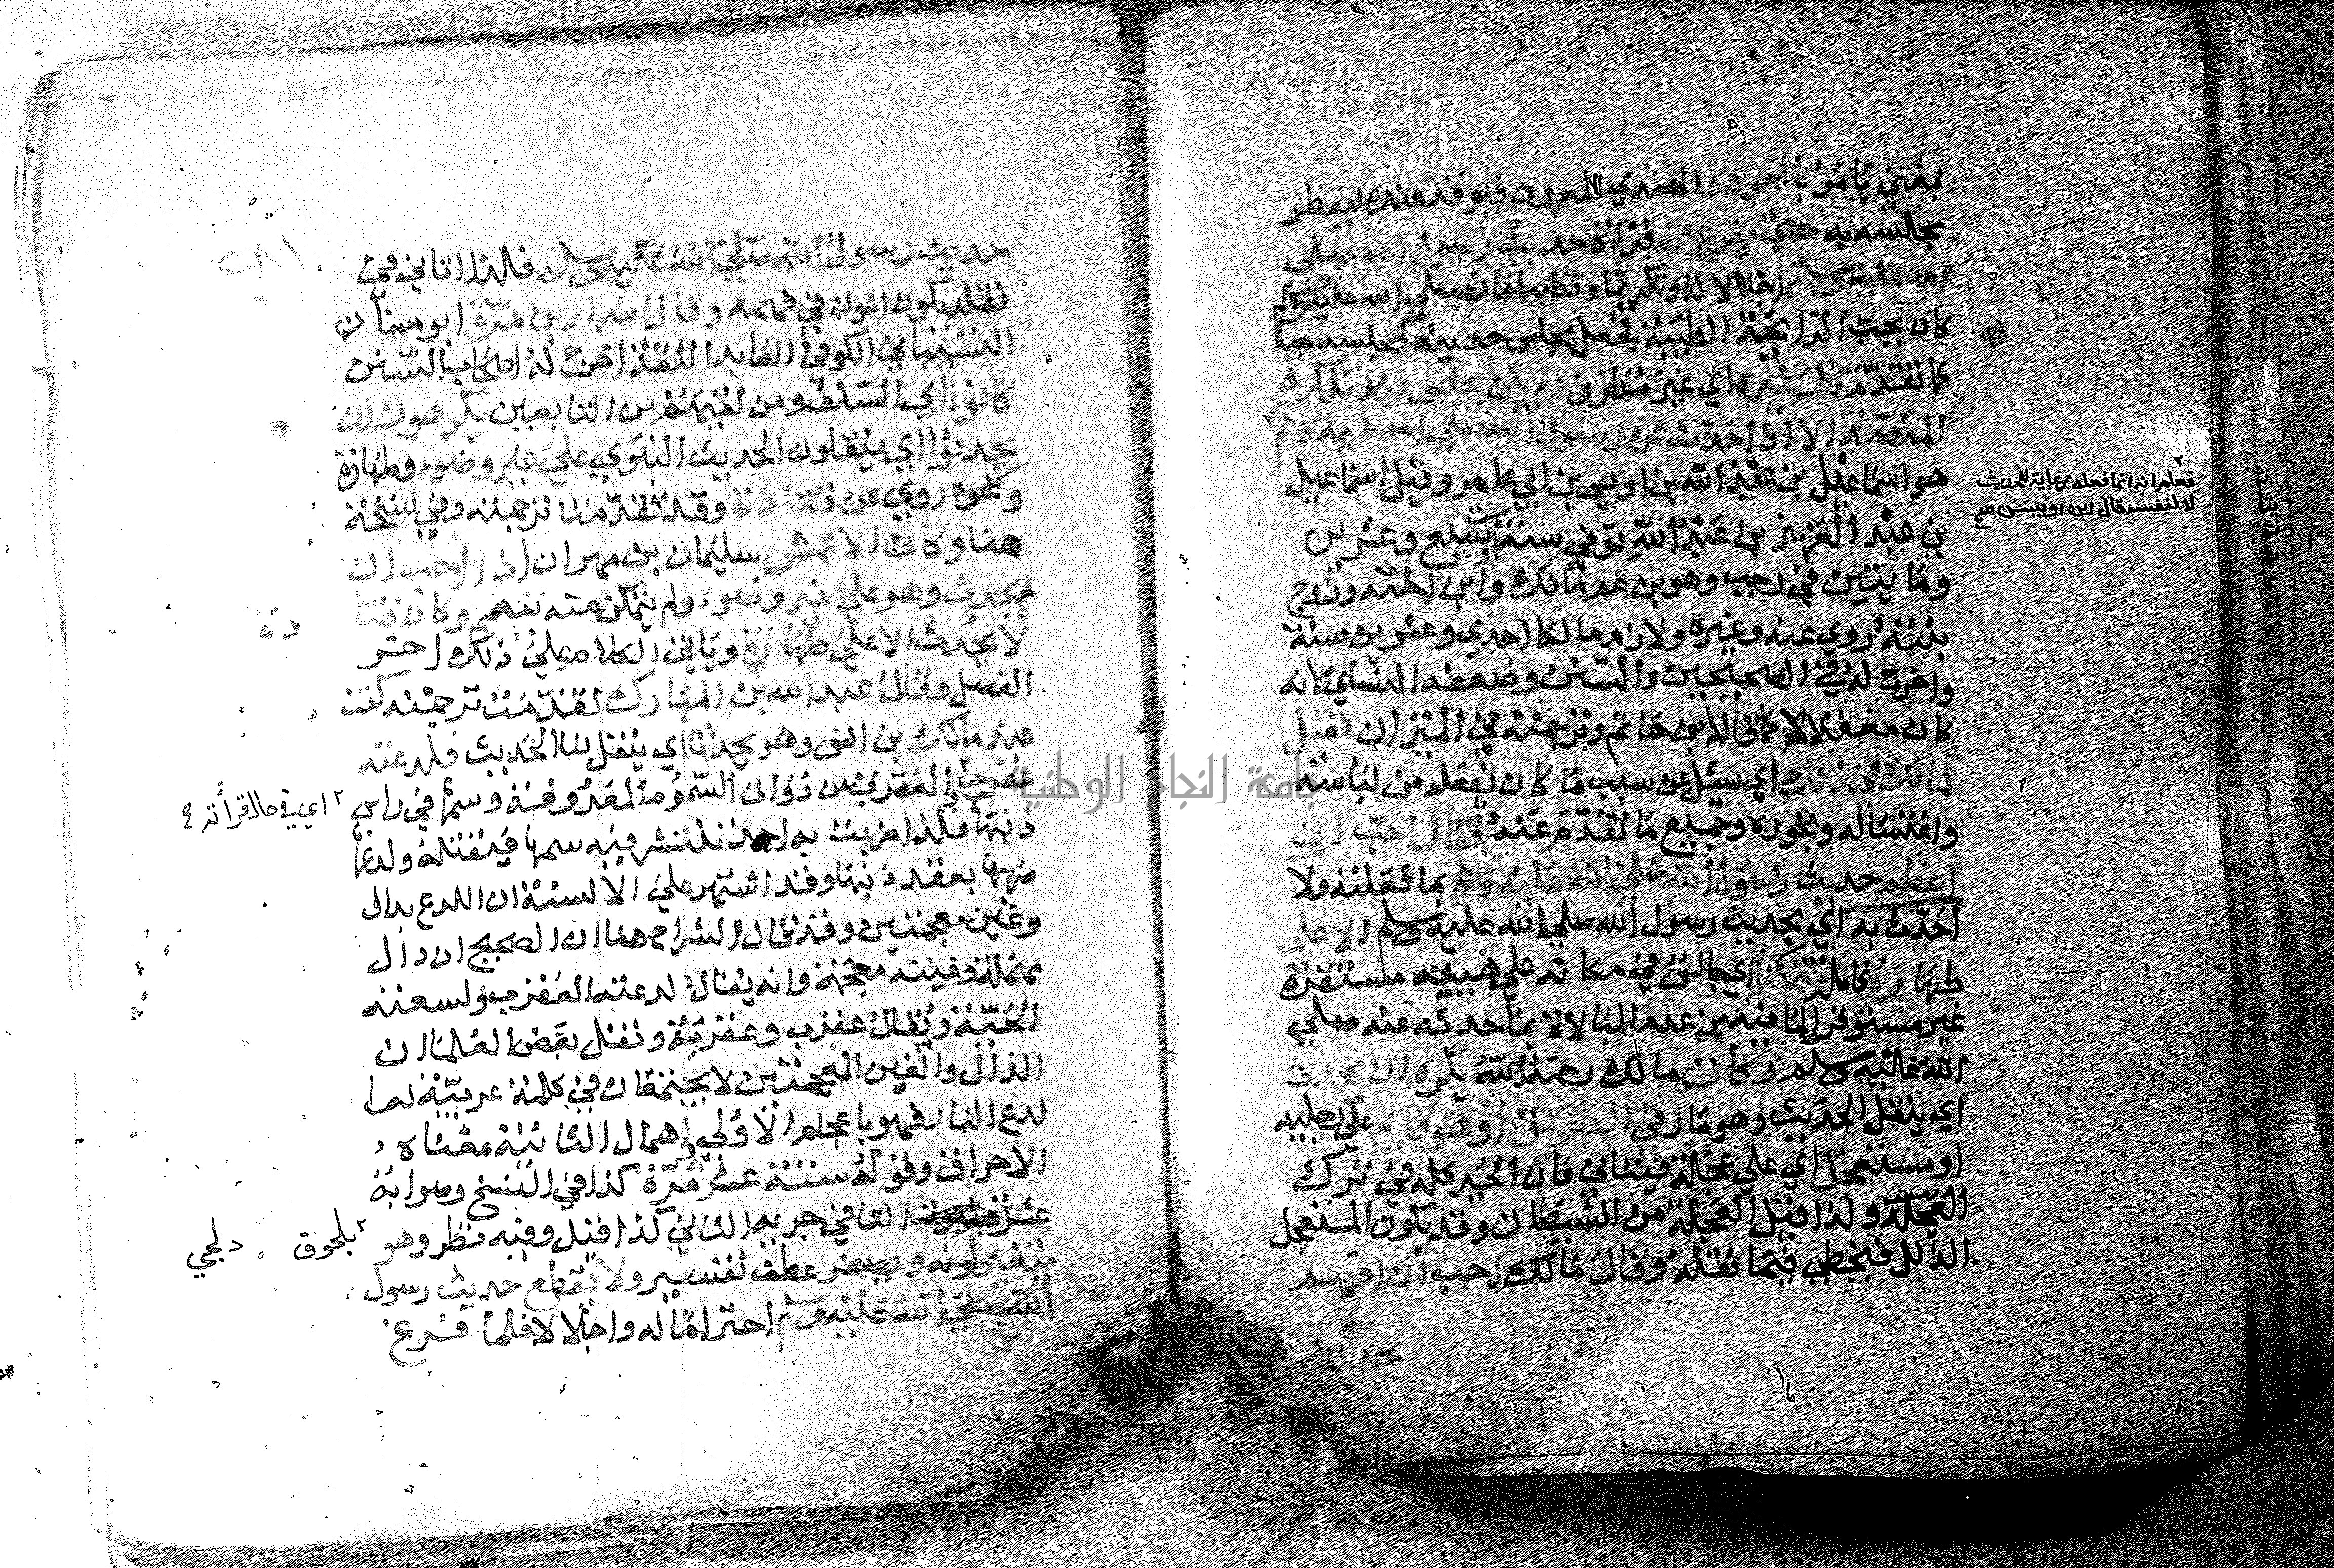 بمعني يامر بالعود الهندي المعروف فيوقد عنده ليعطر
مجلسه به حتي يفرغ من قراة حديث رسول الله صلي
الله عليه وسلم اجلالا له وتكريما وتطييبا فانه صلي الله عليه وسلم
كان يحب الرايحة الطيبة فجعل مجلس حديثه كمجلسه حيا
كما تقدم قال غيره اي غير مطرف ولم يكن يجلس علي تلك
المنصة الا اذا حدث عن رسول الله صلي الله عليه وسلم
هو اسماعيل بن عبد الله بن اويس بن ابي عامر وقيل اسماعيل
بن عبد العزيز بن عبد الله توفي سنة وعشرين
ومايتين في رجب وهو بن عم مالك وابن اخته وزوج
بنته روي عنه وغيره ولازم مالكا احدي وعشرين سنة
واخرج له في الصحيحين والسنن وضعفه النساي لانه
كان مغفلا كما قاله ابو حاتم وترجمته في الميزان فقيل
لمالك في ذلك اي سئل عن سبب ما كان يفعله من لباسه
واغتساله وبخوره وجميع ما تقدم عنه فقال احب ان
اعظم حديث رسول الله صلي الله عليه وسلم بما فعلته ولا
احدث به اي بحديث رسول الله صلي الله عليه وسلم الا علي
طهارة كاملة متمكنا اي جالس في مكانه علي هيية مستقرة
غير مستوفز لما فيه من عدم المبالاة بما حدثه عنه صلي
الله عليه وسلم وكان مالك رحمه الله يكره ان يحدث
اي ينقل الحديث وهو مار في الطريق او هو قايم علي رجليه
او مستعجل اي علي عجلة فيتاني فان الخير كله في ترك
العجلة ولذا قيل العجلة من الشيطان وقد يكون المستعجل
الزلل فيخطي فيما نقله وقال مالك احب ان افهم
حديث
فعلم انه انما فعله رعاية للحديث
لا لنفسه قال ابن اويس صح
٢٨١
حديث رسول الله صلي الله عليه وسلم فالهذا اتاني في
نقله يكون اعون في فهمه وقال ضرار بن مرة ابو سنان
الشيباني الكوفي العابد الثقة اخرج له اصحاب السنن
كانوا اي السلف ومن لقيهم من التابعين يكرهون ان
يحدثوا اي ينقلون الحديث النبوي علي غير وضوء وطهارة
ونحوه روي عن قتادة وقد تقدمت ترجمته وفي نسخة
هنا وكان الاعمش سليمان بن مهران اذا احب ان
يحدث وهو علي غير وضوء ولم يتمكن منه تيمم وكان قتا
دة
لا يحدث الا علي طهارة وياتي الكلام علي ذلك اخر
الفصل وقال عبد الله بن المبارك تقدمت ترجمته كنت
عند مالك بن انس وهو يحدثنا اي ينقل لنا الحديث فلدغته
عقرب العقرب من ذوات السموم المعروفة وسمها في راس
اي في حال قرأته
ذنبها فلذا ضربت به احد تنشر فيه سمها فيقتله ولدغها
ضربها بعقد ذنبها وقد اشتهر علي الالسنة ان اللدغ بدال
وغين معجمتين وقد قال الشراح هنا ان الصحيح ان دال
مهملة وغينه معجمة وانه يقال لدغته العقرب ولسعته
الحية ويقال عقرب وعقربة ونقل بعض العلما ان
الذال والغين المعجمتين لا يجتمعان في كلمة عربية لما
لدع النار فهو باعجام الاولي واهمال الثانية معناه
الاحراق وقوله ستة عشر مرة كذا في النسخ وصوابه
عشرة التا في جزيه الثاني كذا قيل وفيه نظر وهو
بلحوق دلجي
يتغير لونه ويصفر عطف تفسير ولا يقطع حديث رسول
الله صلي الله عليه وسلم احتراما له واجلالا فلما فرغ
جامعة النجاح الوطنية